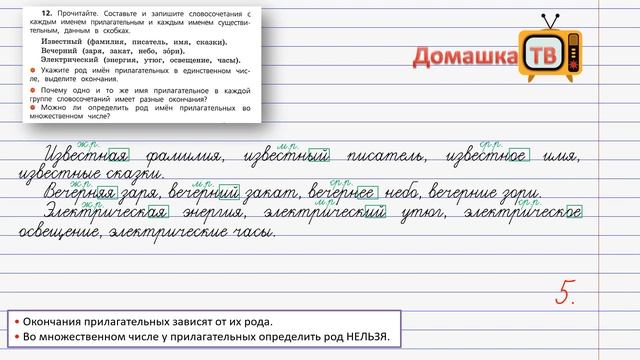 12. Прочитайте. Составьте и запишите словосочетания с
каждым именем прилагательным и каждым именем существи-
тельным, данным в скобках.
Известный (фамилия, писатель, имя, сказки).
Вечерний (заря, закат, небо, зóри).
Электрический (энергия, утюг, освещение, часы).
Укажите род имён прилагательных в единственном чис-
ле, выделите окончания.
Почему одно и то же имя прилагательное в каждой
группе словосочетаний имеет разные окончания?
Можно ли определить род имён прилагательных во
множественном числе?
Домашка ТВ
ж.р. м.р. ср.р.
Известная фамилия, известный писатель, известное имя,
известные сказки.
ж.р. м.р. ср.р.
Вечерняя заря, вечерний закат, вечернее небо, вечерние зори.
ж.р. м.р. ср.р.
Электрическая энергия, электрический утюг, электрическое
освещение, электрические часы.
5.
• Окончания прилагательных зависят от их рода.
• Во множественном числе у прилагательных определить род НЕЛЬЗЯ.